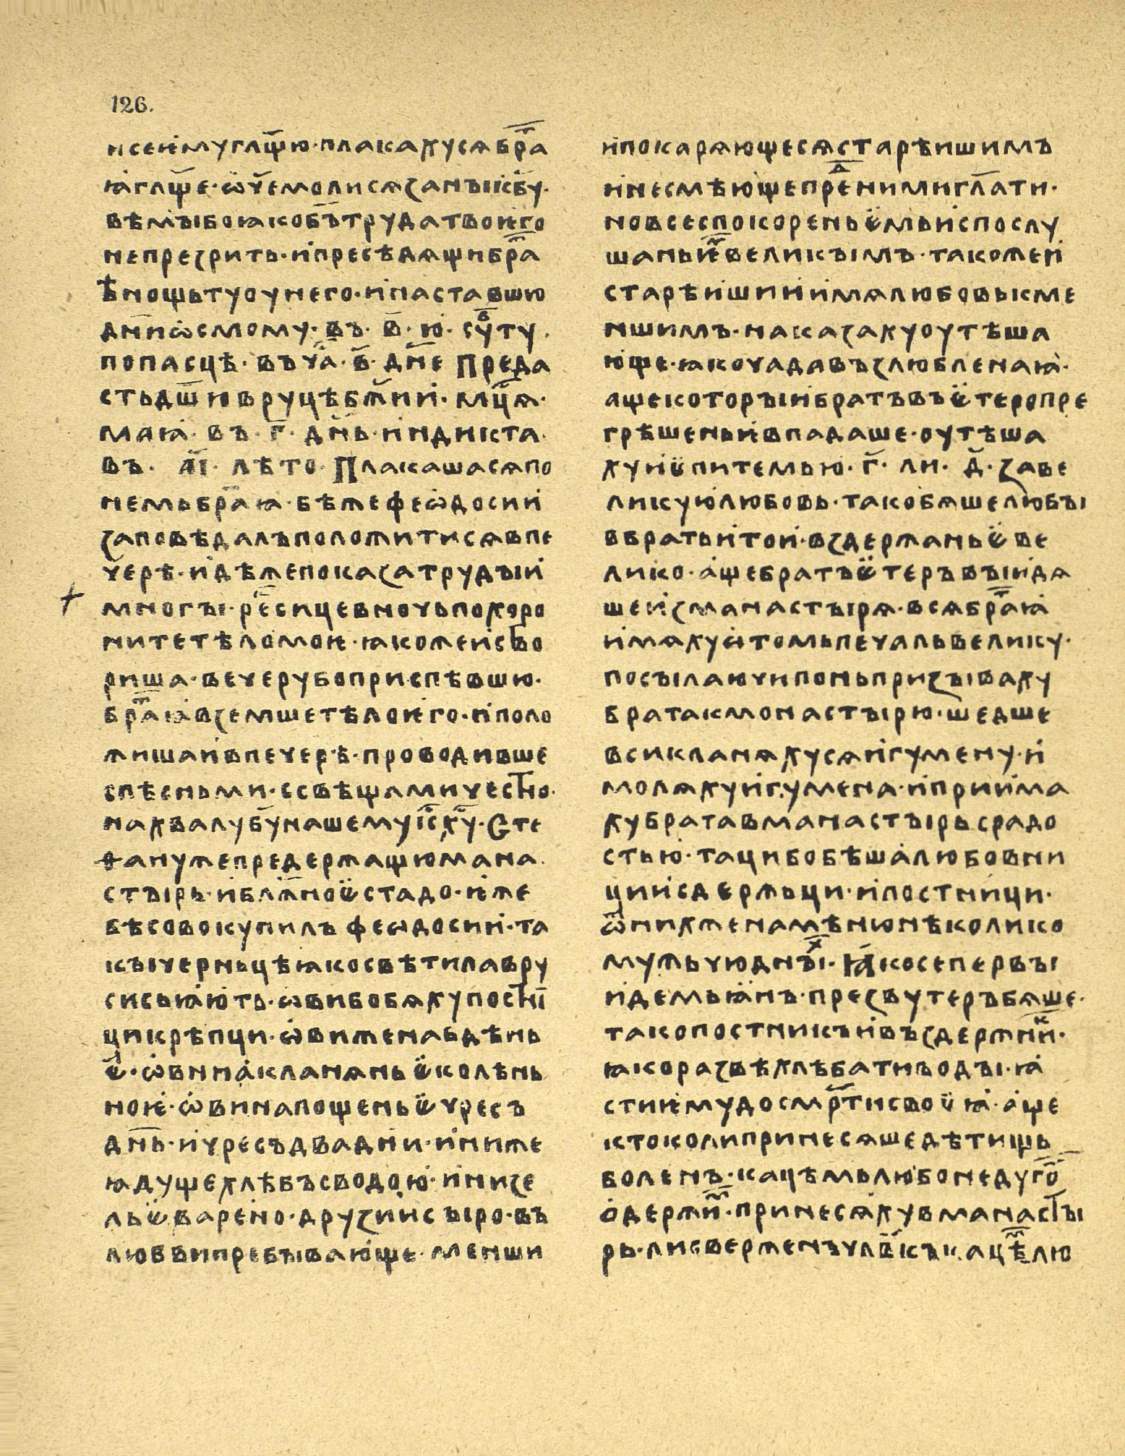 126.
и се ѥму глщ҃ю · плакахусѧ бра҃
ꙗ глщ҃е · ѡч҃е молисѧ за ны к бу҃ ·
вѣмы бо ꙗко бъ҃ труда твоѥго
не презрить · и пресѣдѧщи бра҃
ѣ нощь ту оу него · и наставшю
дн҃и ѡсмому · въ · в҃ · ю · су҃ту
по пасцѣ · въ ча҃ · б҃ · дн҃е преда
сть дш҃ю в руцѣ бж҃ии · мц҃ѧ ·
маꙗ · въ · г҃ · дн҃ь · индикта ·
въ · аі҃ · лѣто · Плакашасѧ по
немь бра҃ꙗ · бѣ же феѡдосии
заповѣдалъ положитисѧ в пе
черѣ · идѣже показа труды
многы · ре҃ сице в ночь похоро
ните тѣло моѥ · ꙗкоже и ство
риша · вечеру бо приспѣвшю ·
бра҃ꙗ вземше тѣло ѥго · и поло
жиша и в печерѣ · проводивше
с пѣсньми · с свѣщами честно ·
на хвалу бу҃ нашему іс҃ ху҃ · Сте
фану же предержащю мана
стырь · и блж҃ноѥ стадо · иже
бѣ совокупилъ феѡдосии · та
кы черньцѣ ꙗко свѣтила в ру
си сьꙗють · ѡви бо бѧху постні
ци крѣпци · ѡви же на бдѣнь
ѥ · ѡви на кланѧньѥ колѣнь
ноѥ · ѡви на пощеньѥ чресъ
дн҃ь · и чресъ два дни · ини же
ꙗдуще хлѣбъ с водою · ини зе
льѥ варено · друзии сыро · въ
любви пребывающе · менши
и покарѧющесѧ старѣишимъ
и не смѣюще пре ними глати ·
но все с покореньѥмь и с послу
шаньѥ великымъ · такоже и
старѣишии имѧ любовь к ме
ншимъ · наказаху оутѣша
юще · ꙗко чада възлюбленаꙗ ·
аще которыи братъ въ ѥтеро пре
грѣшеньѥ впадаше · оутѣша
ху и ѥпитемью · г҃ · ли · д҃ · за ве
ликую любовь · тако бѧше любы
в братьи тои · въздержаньѥ ве
лико · аще братъ ѥтеръ выидѧ
ше из манастырѧ · всѧ бра҃ꙗ
имѧху ѡ томь печаль велику ·
посылаючи по нь призываху
брата к монастырю · шедше
вси кланѧхусѧ игумену · и
молѧху игумена · и приима
ху брата в манастырь с радо
стью · таци бо бѣша любовни
ци и сдержьци · и постници ·
ѿ них же намѣню нѣколико
мужь чюдны · Ꙗко се первыи
и демьꙗнъ · презвутеръ бѧше ·
тако постникъ и въздержн҃и ·
ꙗко развѣ хлѣба ти воды · ꙗ
сти ѥму до смр҃ти своѥꙗ · аще
кто коли принесѧше дѣтищь
боленъ · кацѣмь любо недуго҃
ѡдержи҃ · принесѧху в манасты
рь · ли свершенъ чл҃вкъ кацѣ҃ лю